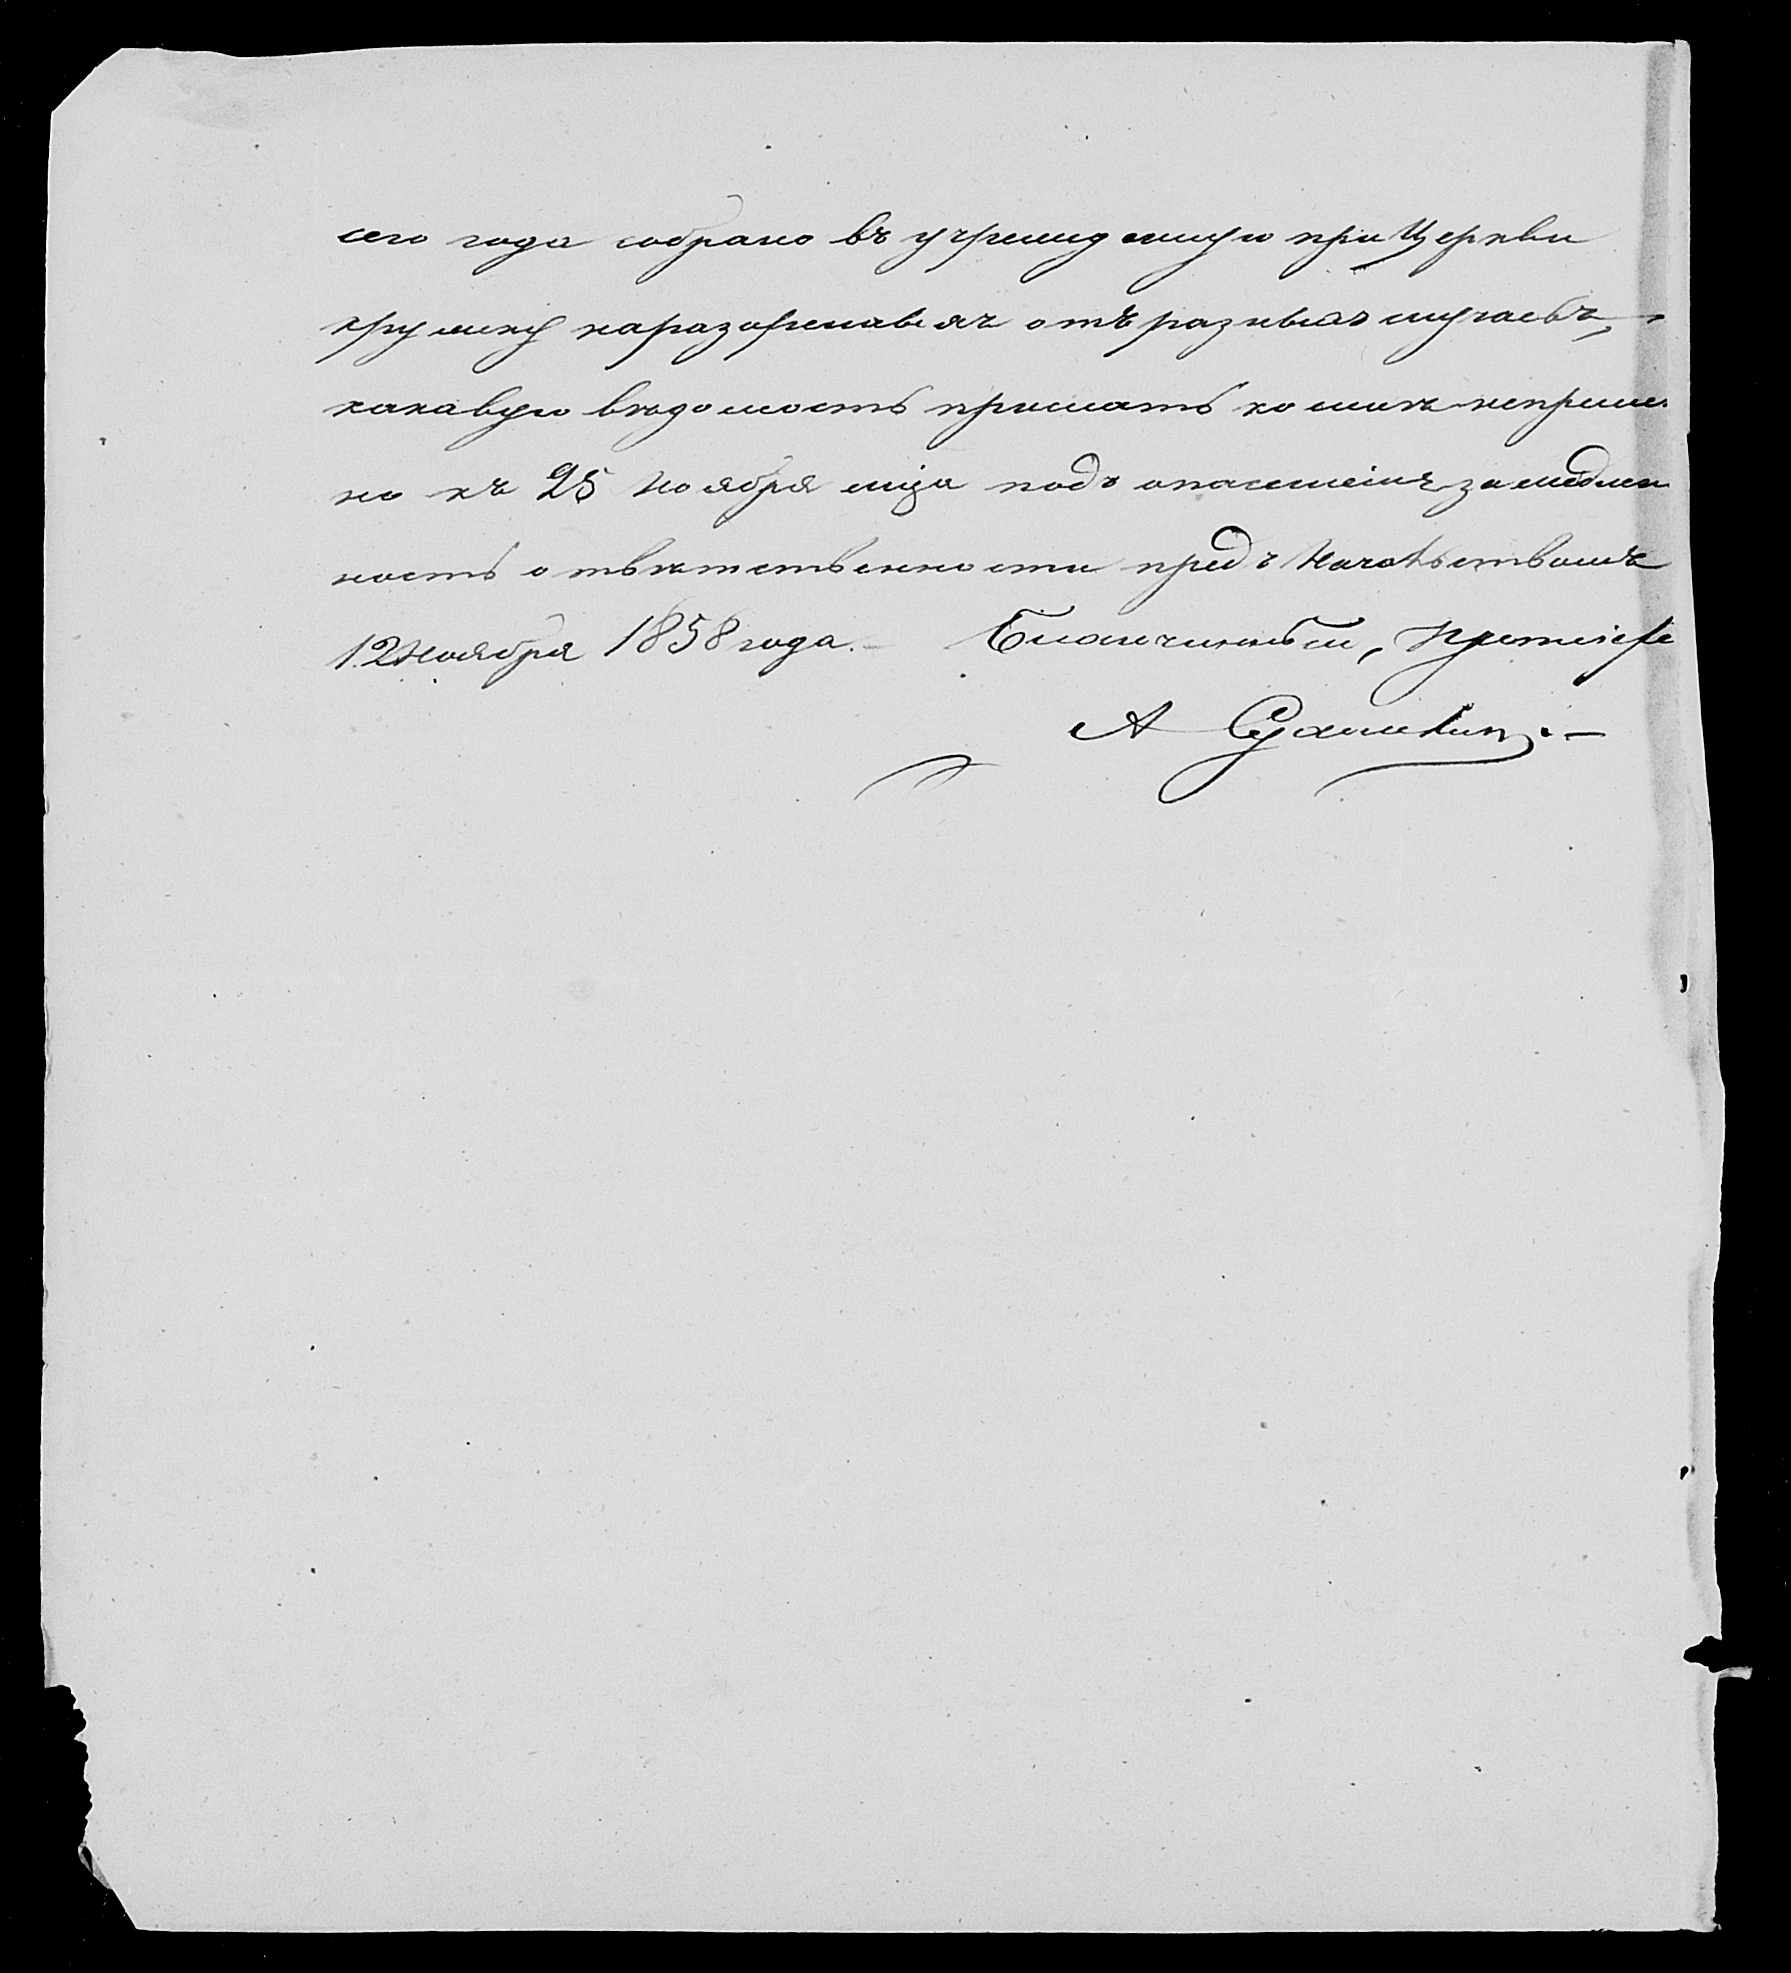 сего года собрано въ учрежденную при Церкви
кружку на разоренныхъ отъ разныхъ случаевъ,
каковую вѣдомость прислать ко мнѣ непремен
но къ 25 Ноября мца подъ опасеніемъ за медлен
ность отвѣтственности предъ Начальствомъ
12 Ноября 1858 года. Благочинный, Протоіере
А